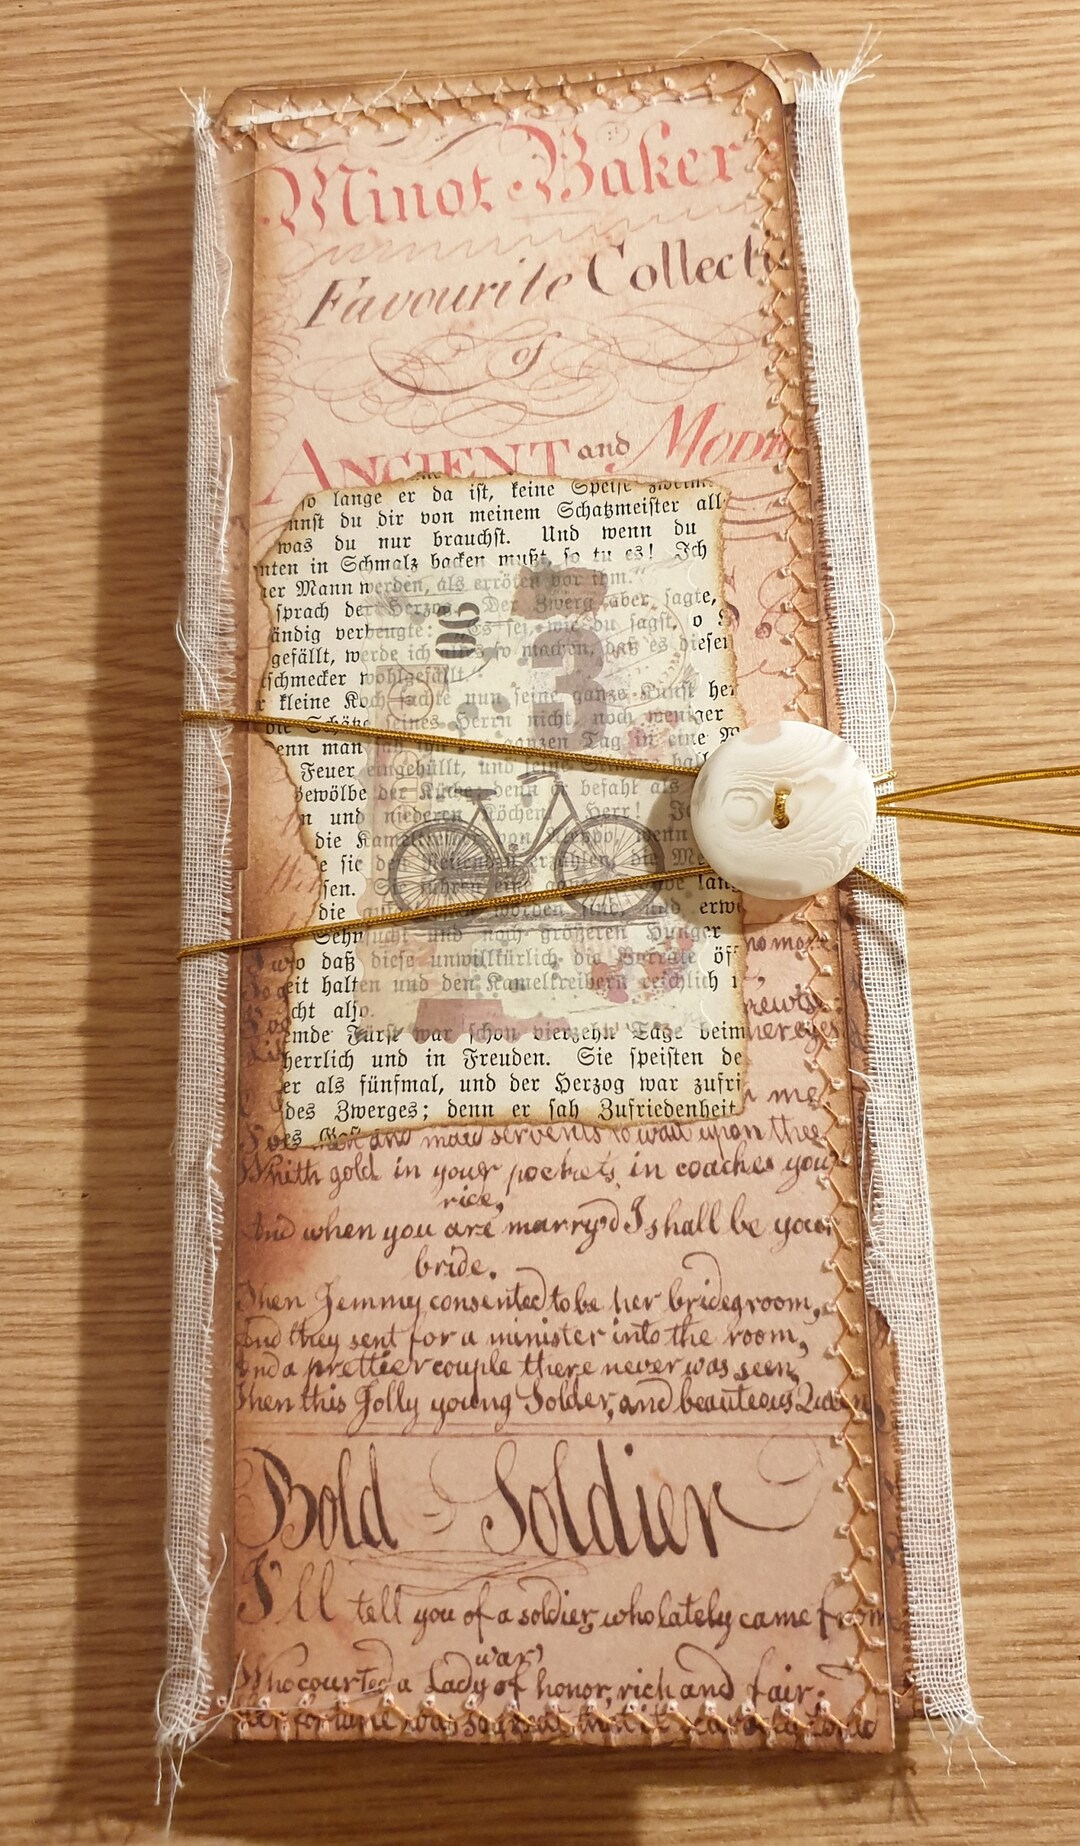 Minot Baker
Favourite Collecti
of
ANCIENT and MODE
so lange er da ist, keine Speise
nnst du dir von meinem Schatzmeister all
was du nur brauchst. Und wenn du
nten in Schmalz backen mußt, so tu es! Ich
er Mann werden, als erröten vor ihm."
sprach der Herzog. Der Zwerg aber sagte,
ändig verbeugte: "Es sei, wie du sagst, o
gefällt, werde ich alles so machen, daß es diesen
schmecker wohlgefällt."
06
3
r kleine Koch suchte nun seine ganze Kunst her
die Schätze seines Herrn nicht, noch weniger
enn man sah ihn den ganzen Tag in eine
Feuer eingehüllt, und seine Stimme hall
Gewölbe der Küche; denn er befahl als
n und niederen Köchen. Herr!
die Kameltreiber von Aleppo, wenn
e sie den Reisenden erzählen, die Me
sen. Sie führen eine ganze Stunde lang
die worden sind, und erwe
Sehnsucht und noch größeren Hunger
so daß diese unwillkürlich die Vorräte öf
eit halten und den Kameltreibern reichlich
cht also.
emde Fürst war schon vierzehn Tage beim
herrlich und in Freuden. Sie speisten de
er als fünfmal, und der Herzog war zufri
des Zwerges; denn er sah Zufriedenheit
no more
newts
her eyes
me
and maid servents to wait upon thee
Whith gold in your pockets, in coaches you
rice,
And when you are marry'd I shall be your
bride.
Then Jemmy consented to be her bridegroom,
And they sent for a minister into the room,
And a prettier couple there never was seen,
Then this Jolly young Solder, and beauteous Queen
Bold - Soldier
I'll tell you of a soldier, who lately came from
war,
Who courted a Lady of honor, rich and fair;
her fortune was so great